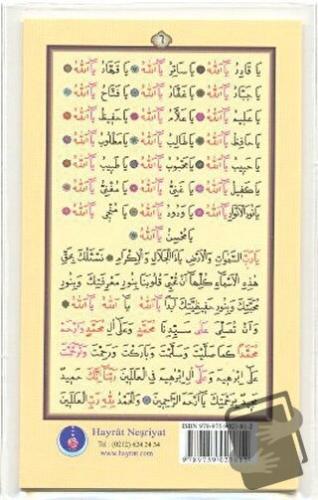 ٦
يَا قَادِرُ يَا اَللهُ يَا سَاتِرُ يَا اَللهُ يَا قَهَّارُ يَا اَللهُ
يَا جَبَّارُ يَا اَللهُ يَا غَفَّارُ يَا اَللهُ يَا فَتَّاحُ يَا اَللهُ
يَا عَلِيمُ يَا اَللهُ يَا عَلَّامُ يَا اَللهُ يَا حَفِيظُ يَا اَللهُ
يَا حَافِظُ يَا اَللهُ يَا طَالِبُ يَا اَللهُ يَا مَطْلُوبُ يَا اَللهُ
يَا حَبِيبُ يَا اَللهُ يَا مَحْبُوبُ يَا اَللهُ يَا طَبِيبُ يَا اَللهُ
يَا كَفِيلُ يَا اَللهُ يَا غَنِيُّ يَا اَللهُ يَا مُغْنِي يَا اَللهُ
يَا نُورَ الْاَنْوَارِ يَا اَللهُ يَا وَدُودُ يَا اَللهُ يَا مُنْجِي يَا اَللهُ
يَا مُحْسِنُ يَا اَللهُ
يَا رَبَّ السَّمٰوَاتِ وَالْاَرْضِ يَا ذَا الْجَلَالِ وَالْاِكْرَامِ نَسْئَلُكَ بِحَقِّ
هٰذِهِ الْاَسْمَاءِ كُلِّهَا اَنْ قُلُوبَنَا بِنُورِ مَعْرِفَتِكَ وَبِنُورِ
مَحَبَّتِكَ وَبِنُورِ اَبَدًا يَا اَللهُ يَا اَللهُ يَا اَللهُ
وَاَنْ تُصَلِّيَ عَلٰى سَيِّدِنَا مُحَمَّدٍ وَعَلٰى اٰلِ مُحَمَّدٍ وَارْحَمْ
مُحَمَّدًا كَمَا صَلَّيْتَ وَسَلَّمْتَ وَبَارَكْتَ وَرَحِمْتَ وَتَرَحَّمْتَ
عَلٰى اِبْرٰهِيمَ وَعَلٰى اٰلِ اِبْرٰهِيمَ فِي الْعَالَمِينَ اِنَّكَ حَمِيدٌ
بِرَحْمَتِكَ يَا اَرْحَمَ الرَّاحِمِينَ وَالْحَمْدُ لِلّٰهِ رَبِّ الْعَالَمِينَ
Hayrât Neşriyat
Tel : (0212) 624 24 34
www.hayrat.com